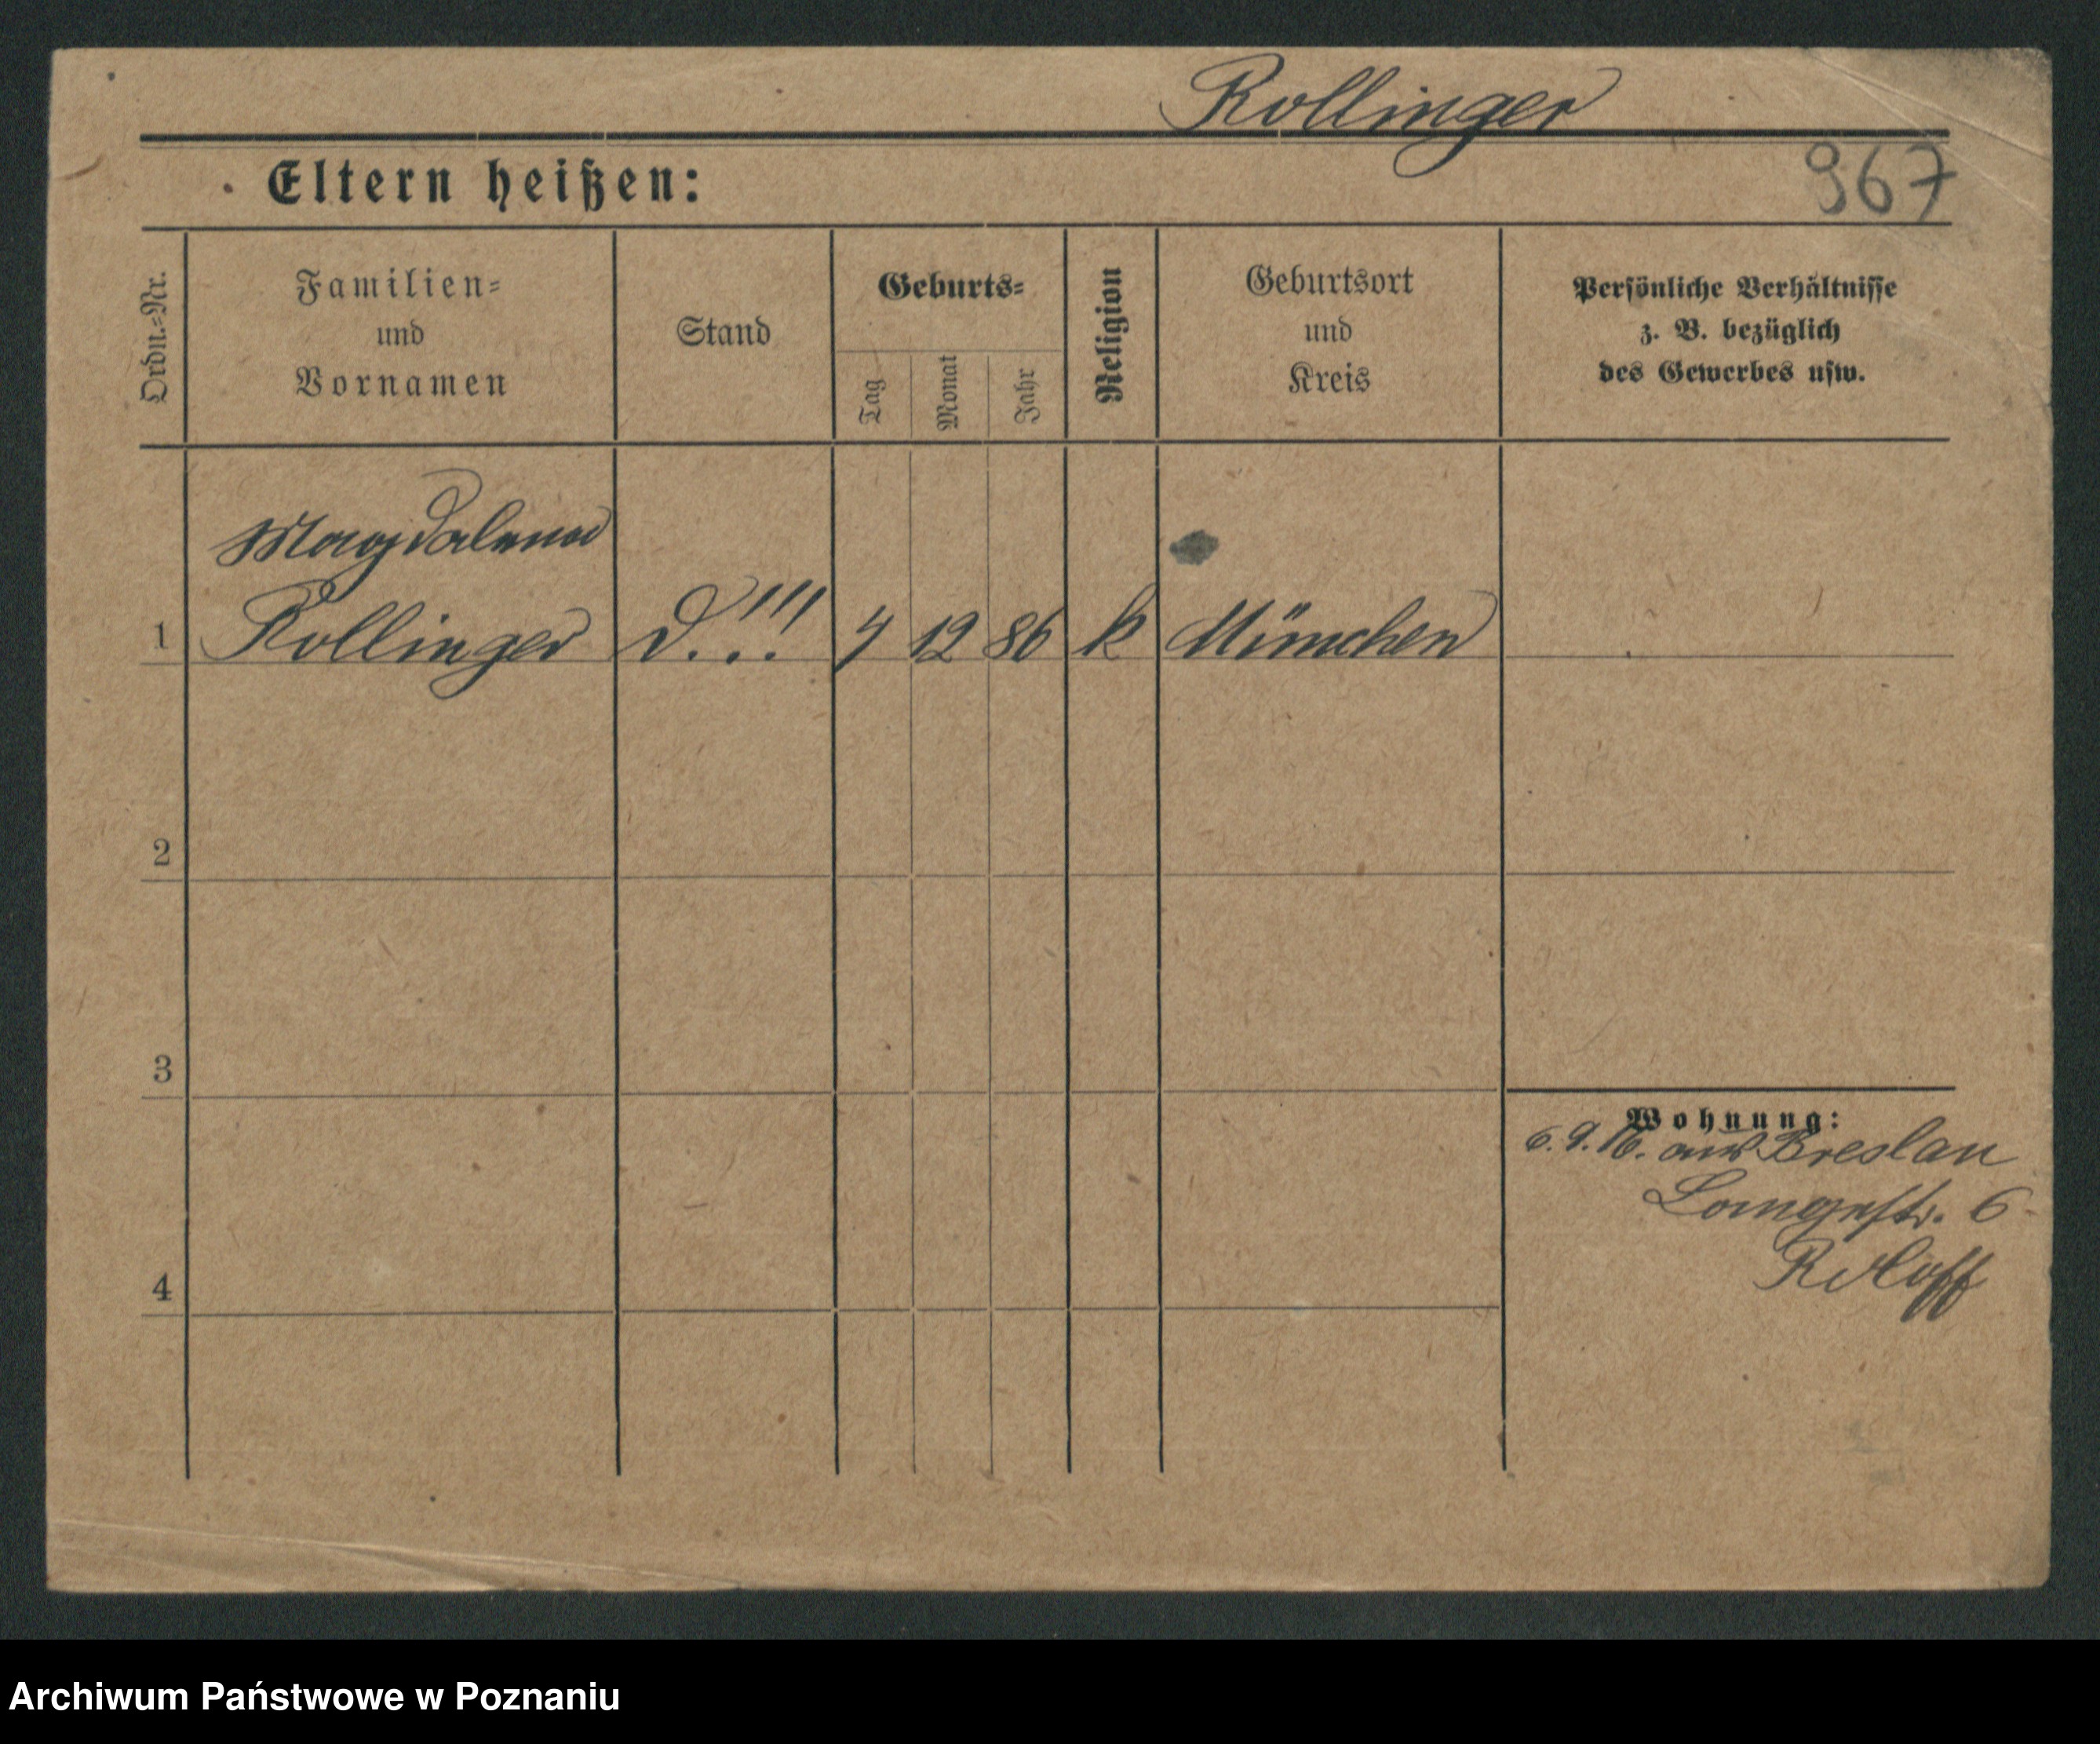 Rollinger
Eltern heißen:
967
Ordn.=Nr.
Familien=
und
Vornamen
Stand
Geburts=
Tag
Monat
Jahr
Religion
Geburtsort
und
Kreis
Persönliche Verhältnisse
z. B. bezüglich
des Gewerbes usw.
Magdalena
1 Rollinger D.!!! 4 12 86 k München
2
3
4
Wohnung:
6.9.16. aus Breslau
Langestr. 6
Roloff
Archiwum Państwowe w Poznaniu